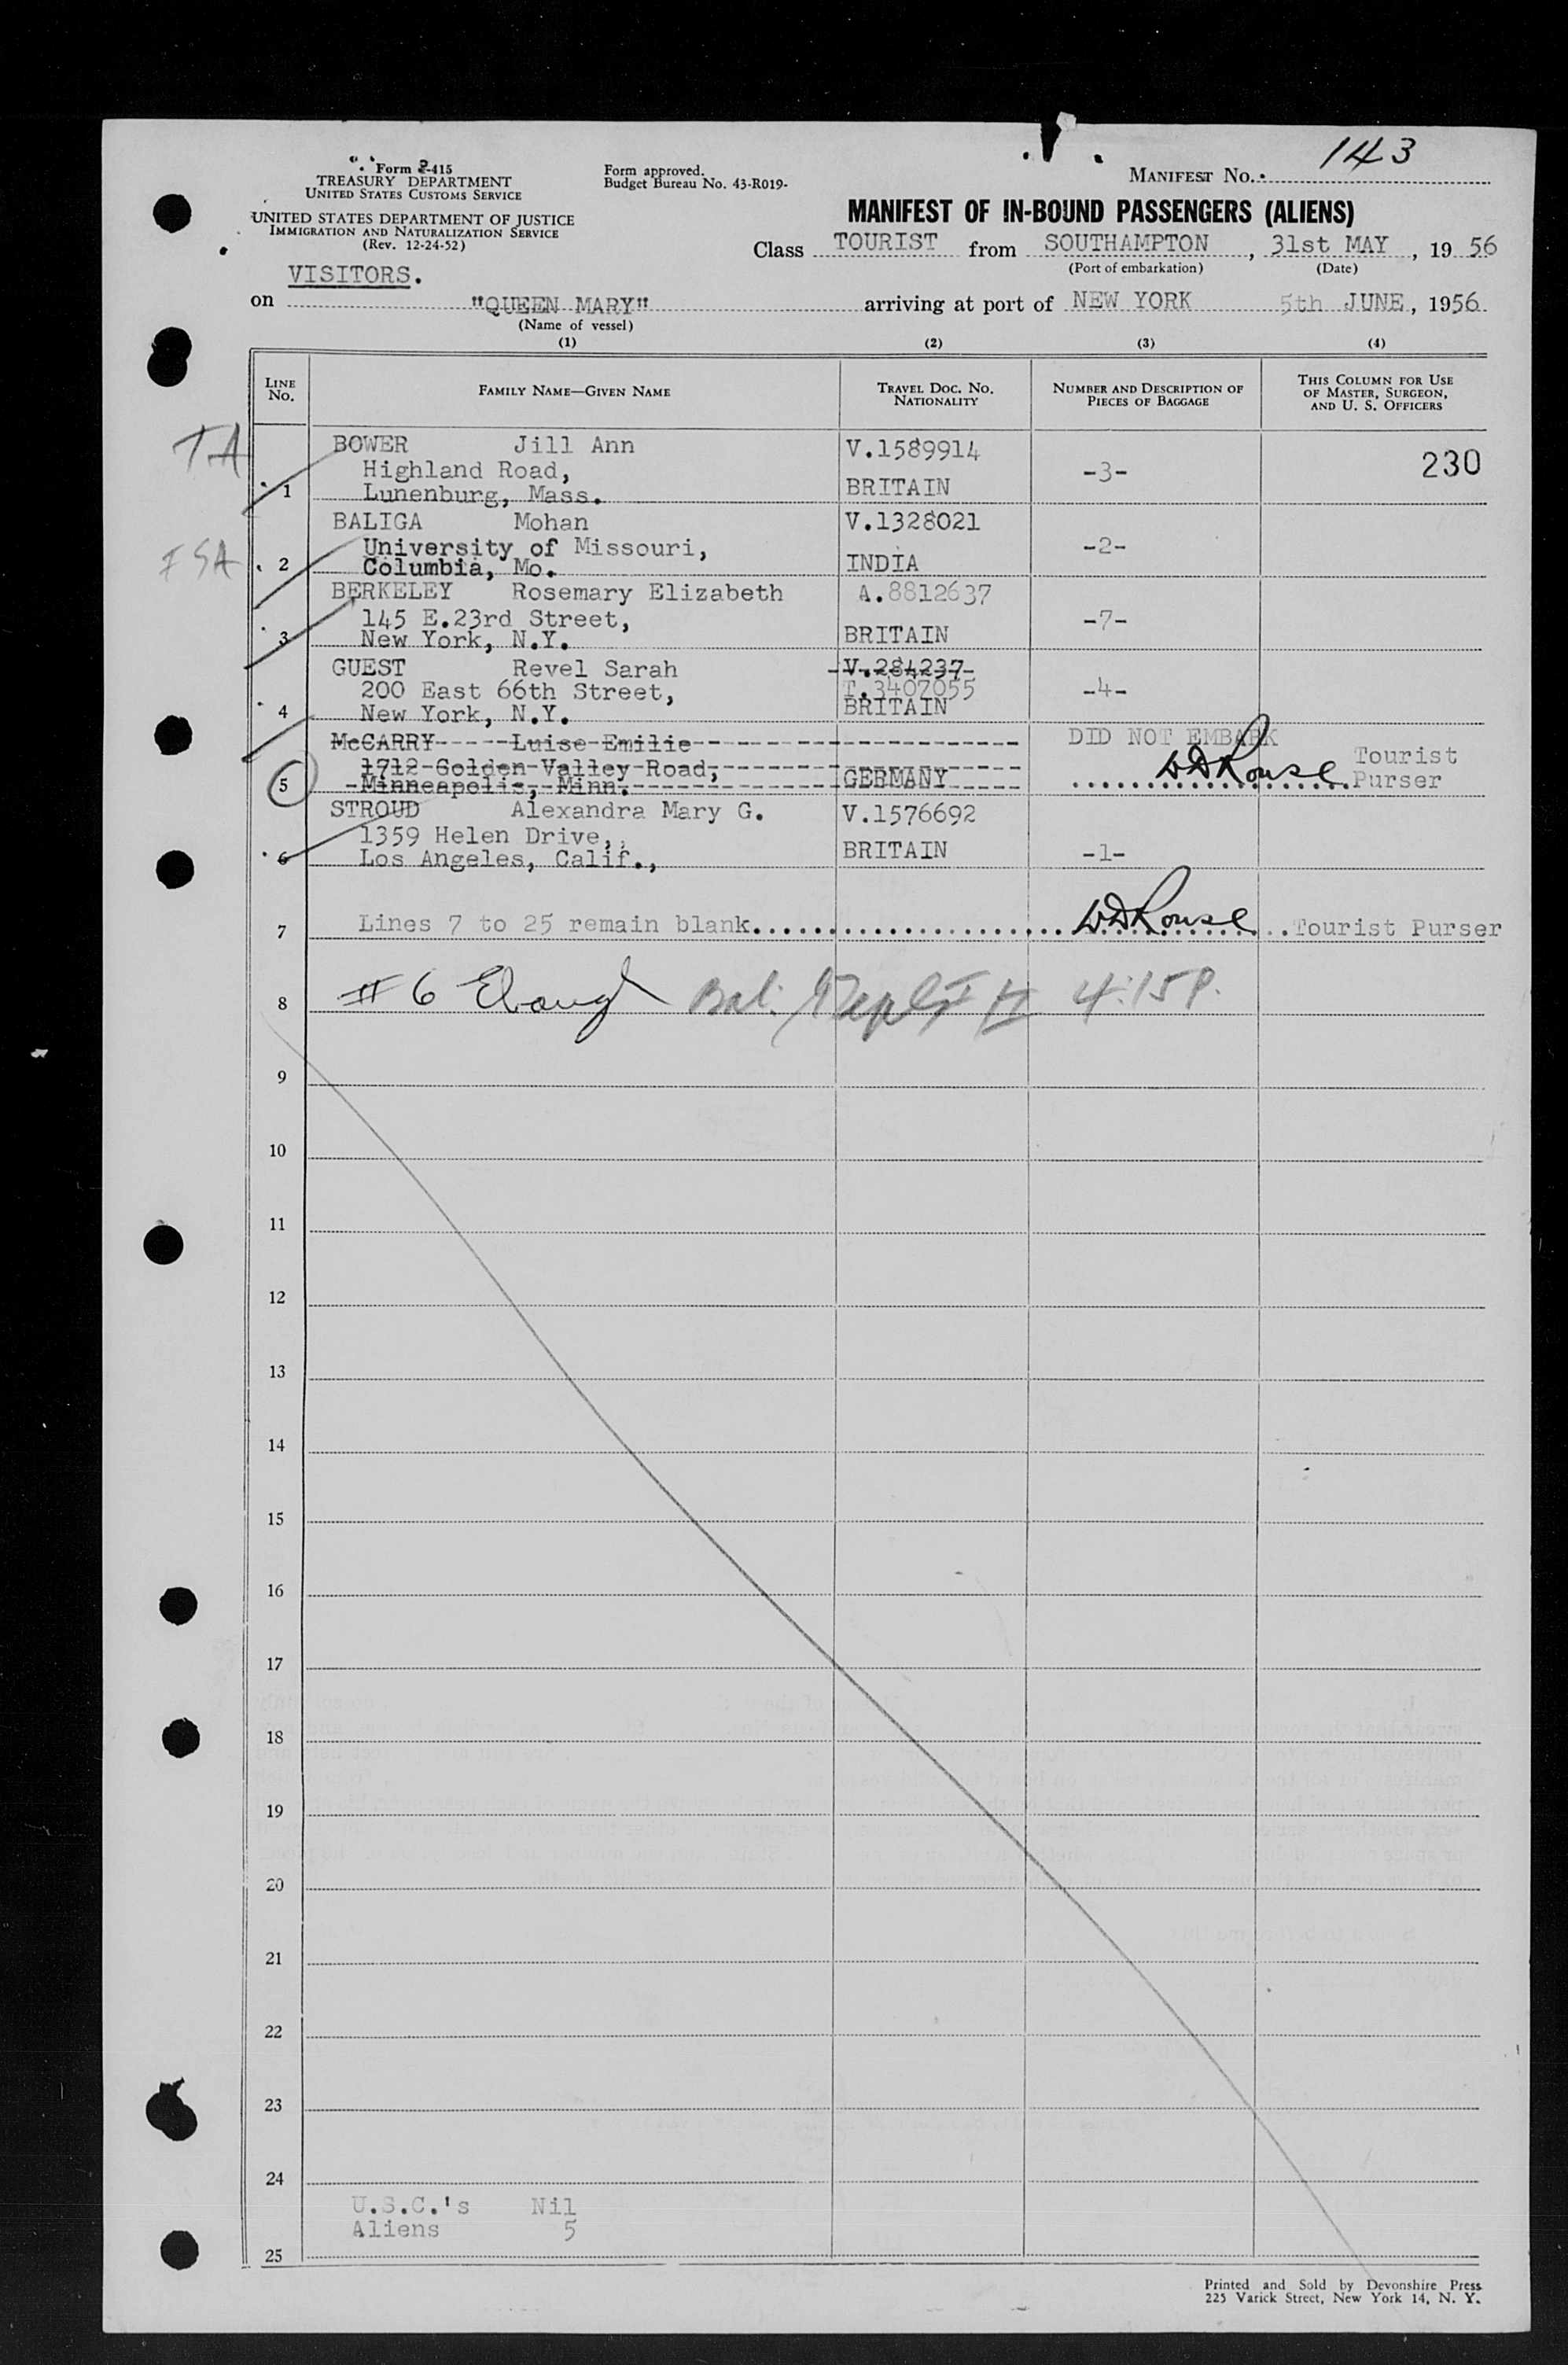 143
Form 2-415
TREASURY DEPARTMENT
UNITED STATES CUSTOMS SERVICE
Form approved.
Budget Bureau No. 43-R019-
MANIFEST No.
UNITED STATES DEPARTMENT OF JUSTICE
IMMIGRATION AND NATURALIZATION SERVICE
(Rev. 12-24-52)
MANIFEST OF IN-BOUND PASSENGERS (ALIENS)
Class TOURIST from SOUTHAMPTON, 31st MAY, 19 56
(Port of embarkation) (Date)
VISITORS.
on "QUEEN MARY" arriving at port of NEW YORK 5th JUNE, 1956
(Name of vessel)
(1) (2) (3) (4)
LINE No. FAMILY NAME—GIVEN NAME TRAVEL DOC. NO. NATIONALITY NUMBER AND DESCRIPTION OF PIECES OF BAGGAGE THIS COLUMN FOR USE OF MASTER, SURGEON, AND U. S. OFFICERS
TA BOWER Jill Ann V.1589914
Highland Road, -3- 230
1 Lunenburg, Mass. BRITAIN
BALIGA Mohan V.1328021
University of Missouri, -2-
2 Columbia, Mo. INDIA
BERKELEY Rosemary Elizabeth A.8812637
145 E.23rd Street, -7-
3 New York, N.Y. BRITAIN
GUEST Revel Sarah V.284237
200 East 66th Street, T.3407055 -4-
4 New York, N.Y. BRITAIN
McCARRY Luise Emilie DID NOT EMBARK
1712 Golden Valley Road, WDRouse Tourist
5 Minneapolis, Minn. GERMANY Purser
STROUD Alexandra Mary G. V.1576692
1359 Helen Drive,
6 Los Angeles, Calif., BRITAIN -1-
7 Lines 7 to 25 remain blank. WDRouse Tourist Purser
8 # 6 Bal. 4:15 P.
9
10
11
12
13
14
15
16
17
18
19
20
21
22
23
24
U.S.C.'s Nil
Aliens 5
25
Printed and Sold by Devonshire Press
225 Varick Street, New York 14, N. Y.